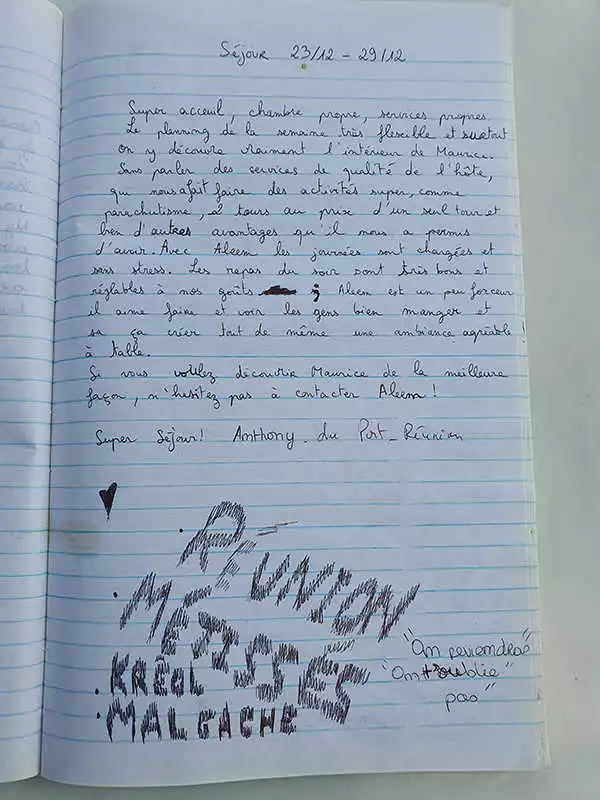 Séjour 23/12 - 29/12
Super acceuil, chambre propre, services propres.
Le planning de la semaine très flexible et surtout
on y découvre vraiment l'intérieur de Maurice.
Sans parler des services de qualité de l'hôte,
qui nous a fait faire des activités super, comme
parachutisme, 2 tours au prix d'un seul tour et
bien d'autres avantages qu'il nous a permis
d'avoir. Avec Aleem les journées sont chargées et
sans stress. Les repas du soir sont très bons et
réglables à nos goûts ; Aleem est un peu forceur
il aime faire et voir les gens bien manger et
sa ça créer tout de même une ambiance agréable !
à table.
Si vous voulez découvrir Maurice de la meilleure
façon, n'hésitez pas à contacter Aleem !
Super Séjour! Anthony du Port-Réunion
RÉUNION
KRÉOL
MALGACHE
"On reviendra"
"On t'oublie"
pas"